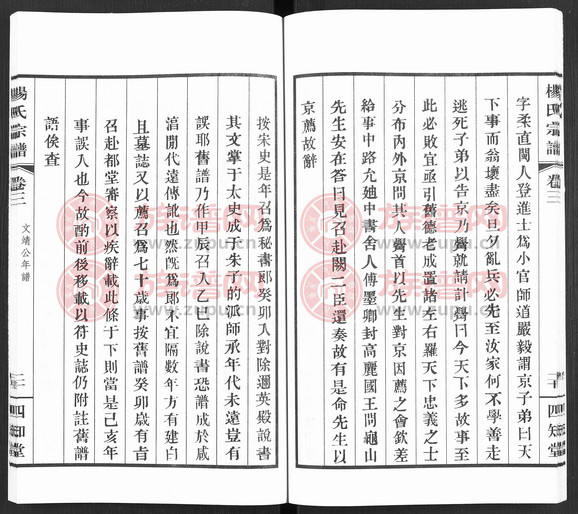 楊氏宗譜 卷三 二十 四知堂
字柔直閩人登進士爲小官師道嚴毅謂京子弟曰天
下事而翁壞盡矣旦夕亂兵必先至汝家何不學善走
逃死子弟以告京乃覺就請計覺曰今天下多故事至
此必敗宜亟引舊德老成置諸左右羅天下忠義之士
分布內外京問其人覺首以先生對京因薦之會欽差
給事中路允迪中書舍人傅墨卿封高麗國王問龜山
先生安在答曰見召赴闕二臣還奏故有是命先生以
京薦故辭
按宋史是年召爲秘書郎癸卯入對除邇英殿說書
其文掌于太史成于朱子的派師承年代未遠豈有
誤耶舊譜乃作甲辰召入乙巳除說書恐譜成於咸
淳間代遠傳訛也然旣爲郎不宜隔數年方有建白
且墓誌又以薦召爲七十歲事按舊譜癸卯歲有旨
召赴都堂審察以疾辭載此條于下則當是己亥年
事誤入也今故酌前後移載以符史誌仍附註舊譜
語俟查
楊氏宗譜 卷三 文靖公年譜 四知堂
族譜网
zupu.cn